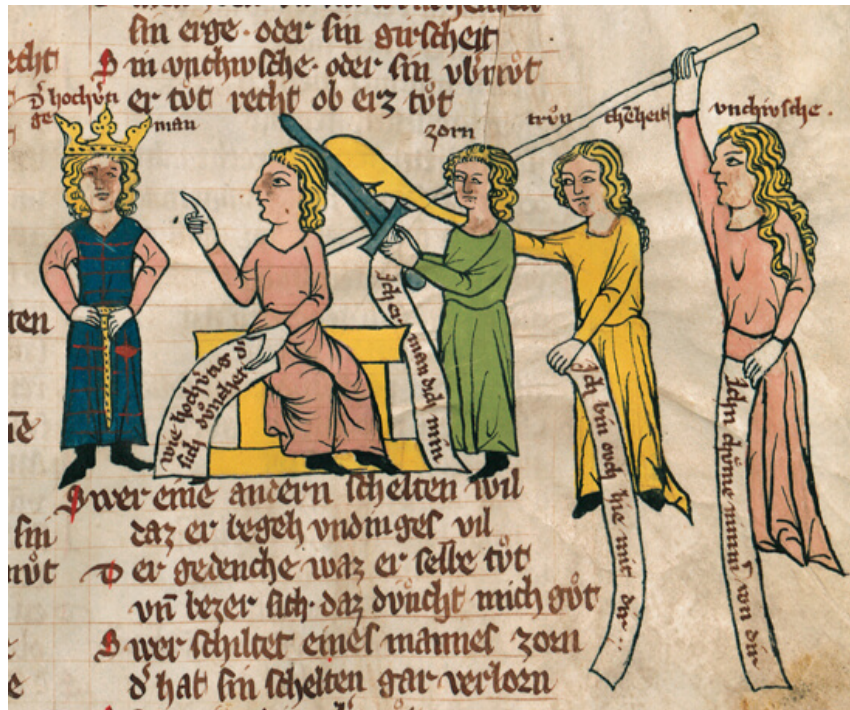 sin erge · oder sin girscheit
echt
S in vnchivsche · oder sin vbˀmvͦt
er tvͦt recht ob erz tvͦt
dˀ hochvˀti
ge man
zorn
trvͦn chēheit
vnchivsche .
ten
wie hochvtig dˀ
sich dvͦnchet
Ich er man dich min
Ich bin ovch hie mit dir ..
Ichn chvͦme nimmˀ von dir
S wer eine andern schelten wil
sin
daz er begeh vndinges vil
mvͦt
D er gedenche waz er selbe tvͦt
vn̄ bezer sich · daz dvͦncht mich gvͦt
S wer schiltet eines mannes zorn
e
dˀ hat sin schelten gar verlorn